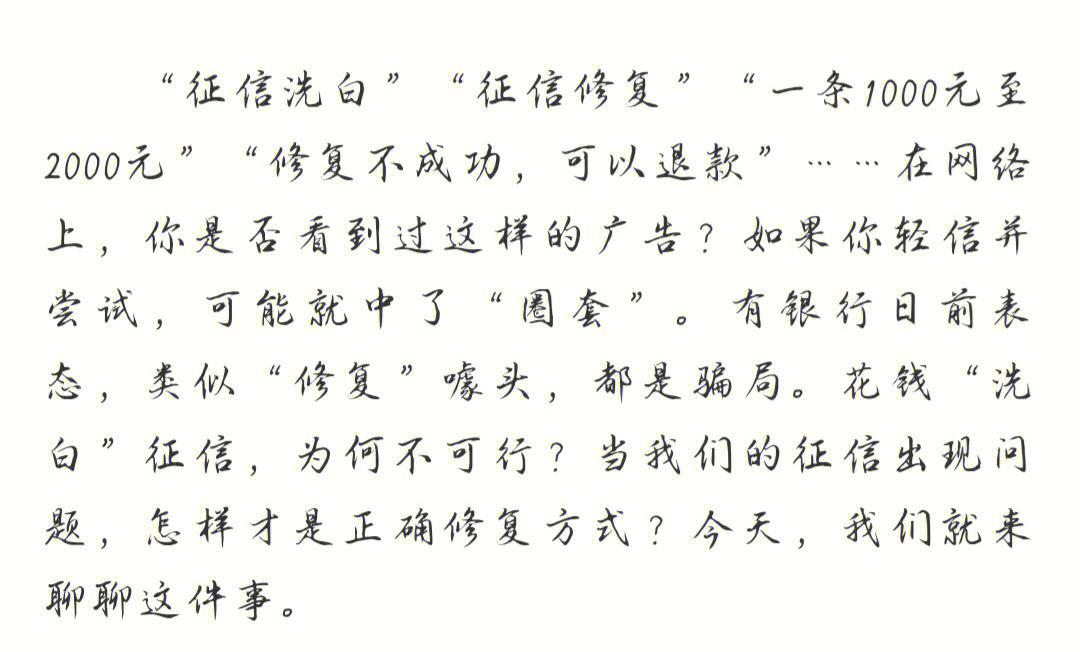 “征信洗白”“征信修复”“一条1000元至
2000元”“修复不成功，可以退款”……在网络
上，你是否看到过这样的广告？如果你轻信并
尝试，可能就中了“圈套”。有银行日前表
态，类似“修复”噱头，都是骗局。花钱“洗
白”征信，为何不可行？当我们的征信出现问
题，怎样才是正确修复方式？今天，我们就来
聊聊这件事。